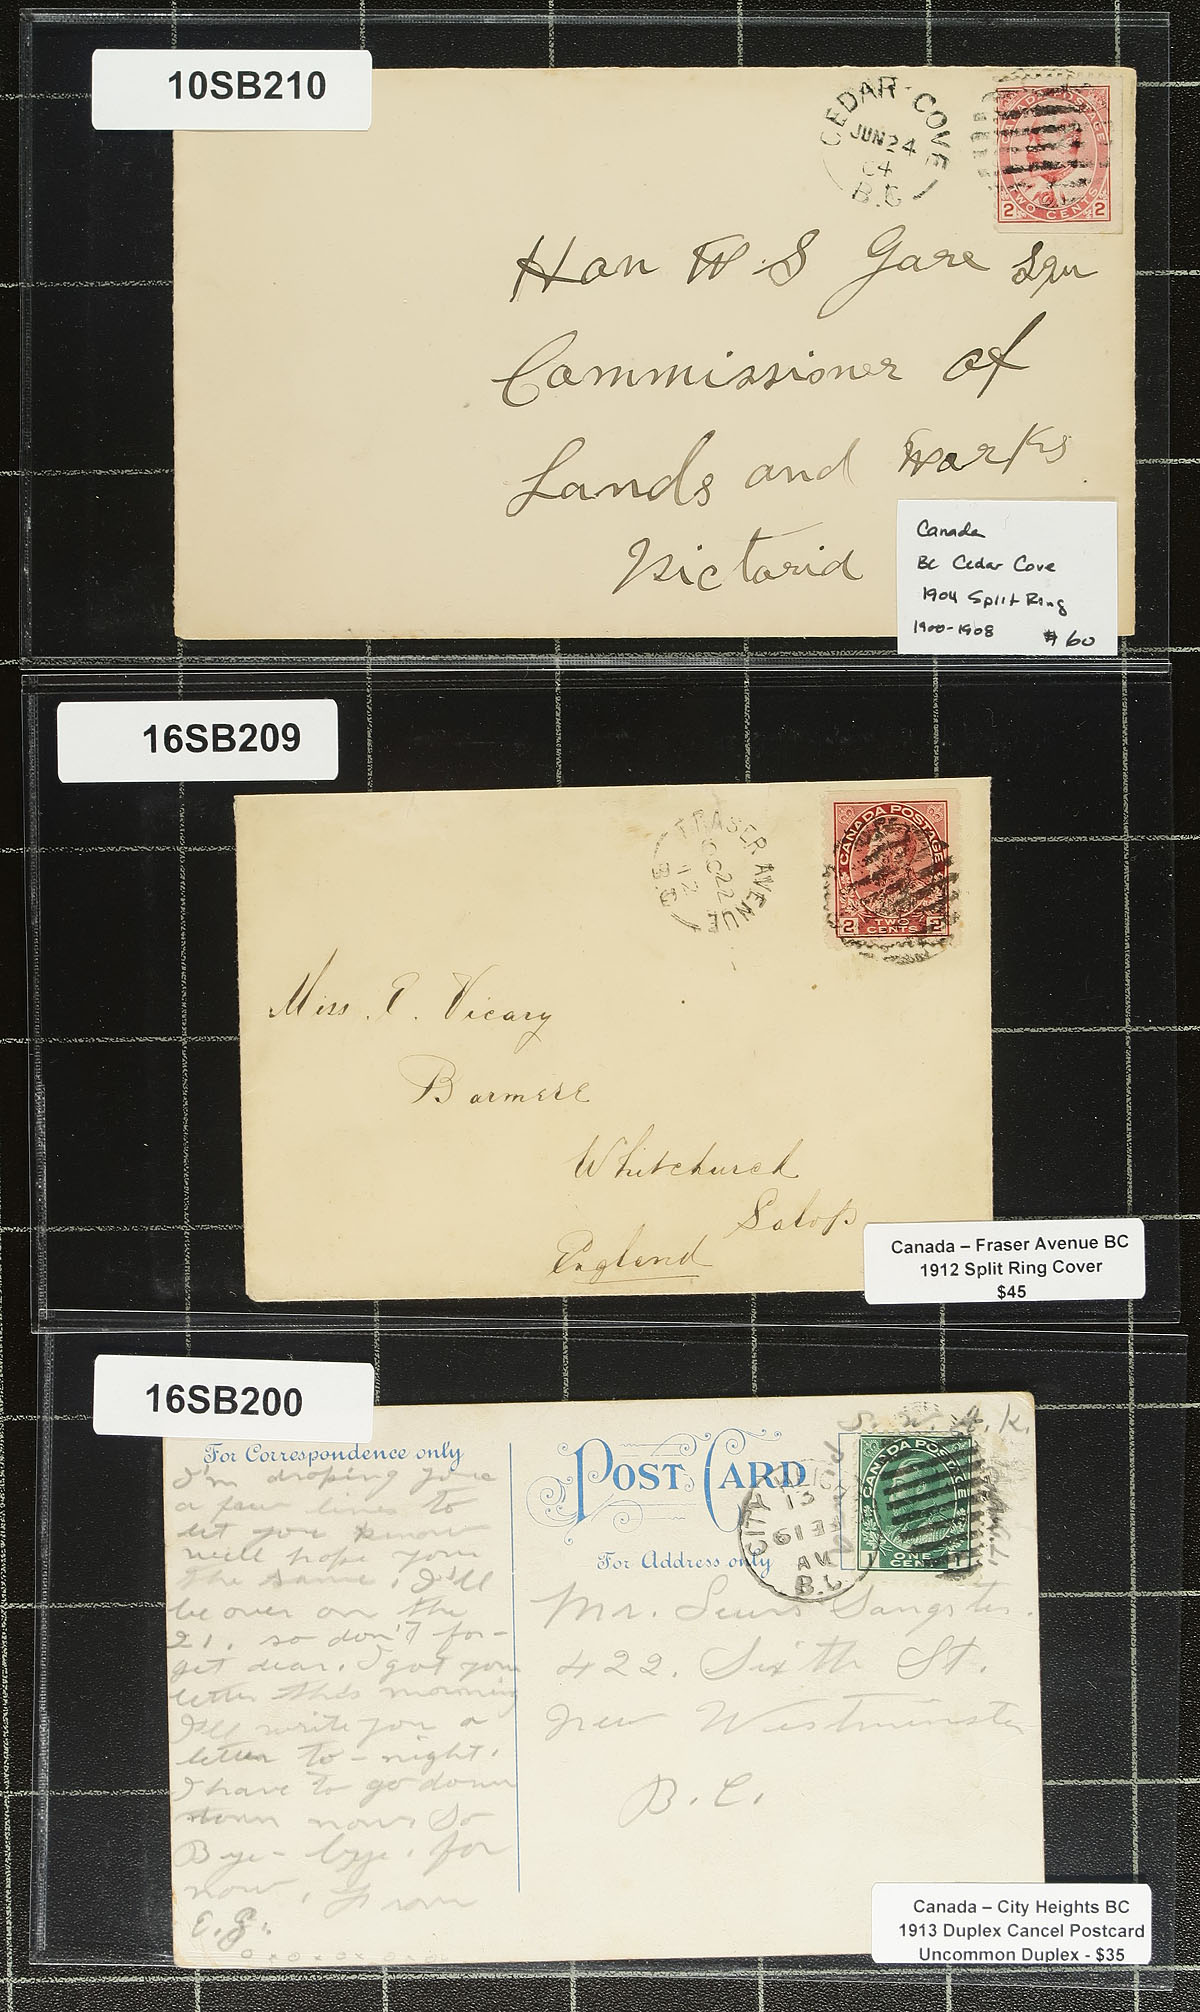 10SB210
CEDAR COVE
JUN 24
04
B.C
CANADA POSTAGE
2 TWO CENTS 2
Hon W. S Gore Squ
Commissioner of
Lands and Works
Victoria
Canada
BC Cedar Cove
1904 Split Ring
1900-1908 $60
16SB209
FRASER AVENUE
OC 22
12
B.C
CANADA POSTAGE
2 TWO CENTS 2
Miss. E. Vicary
Barmere
Whitchurch
Salop
England
Canada – Fraser Avenue BC
1912 Split Ring Cover
$45
16SB200
For Correspondence only
I'm droping you
a few lines to
let you know
well hope your
the same. I'll
be over on the
21. so don't for-
get dear. I got your
letter this morning
I'll write you a
letter to-night.
I have to go down
town now So
Bye-bye. for
now, From
E.G.
POST CARD
For Address only
CITY
13
AM
B.C
CANADA POSTAGE
1 ONE CENT 1
Mr. Lewis Sangster.
422. Sixth St.
New Westminster
B.C.
Canada – City Heights BC
1913 Duplex Cancel Postcard
Uncommon Duplex - $35